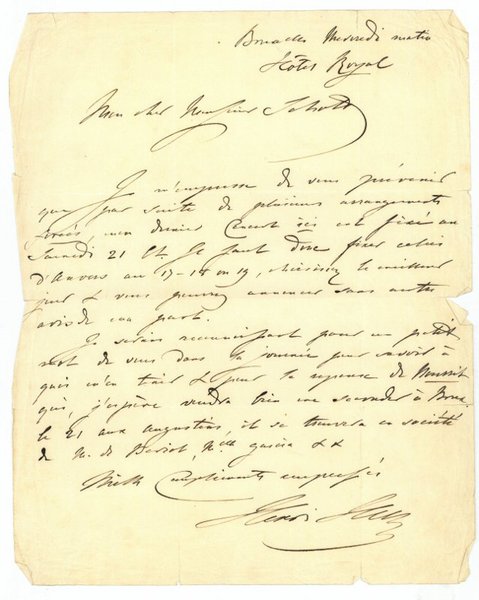 Bruxelles Mercredi matin
Hôtel Royal
Mon cher Monsieur Schott
Je m'empresse de vous prévenir
que par suite de plusieurs arrangements
forcés, mon dernier Concert ici est fixé au
Samedi 21 Ct. Il faut donc fixer celui
d'Anvers au 17-18 ou 19, choisissez le meilleur
jour & vous pourrez annoncer sans autre
avis de ma part.
Je serais reconnaissant pour un petit
mot de vous dans la journée pour savoir à
quoi m'en tenir & pour la réponse de
qui, j'espère voudra bien me seconder à Brux.
le 21 aux augustins, il se trouvera en société
de Mr. de Beriot, Melle garcia &&
Mille Compliments empressés
Henri Herz